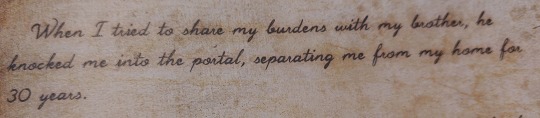 When I tried to share my burdens with my brother, he
knocked me into the portal, separating me from my home for
30 years.